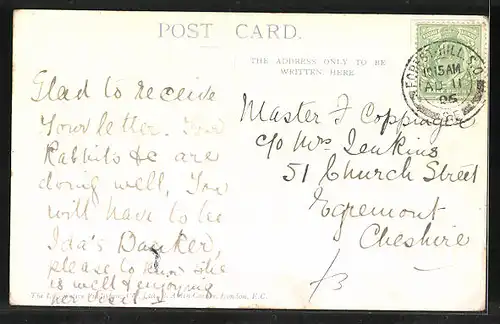 POST CARD.
THE ADDRESS ONLY TO BE
WRITTEN HERE
FOREST-HILL S.O.
10 15 AM
AU 11
06
S.E.
Glad to receive
Your letter. Your
Rabbits &c are
doing well. You
will have to be
Ida's Banker,
please to know she
is well & enjoying
her
London, E.C.
Master F Coppinger
c/o Mrs Jenkins
51 Church Street
Egremont
Cheshire
/3